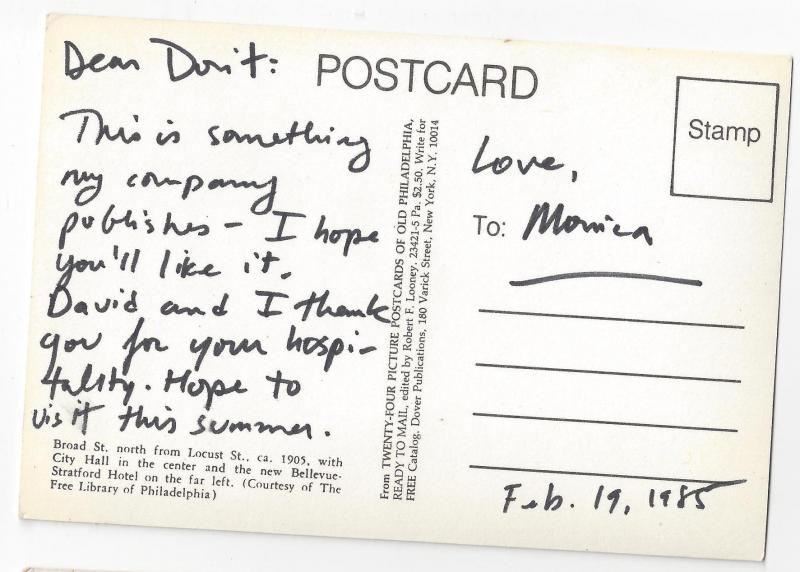 Dear Dorit:
POSTCARD
This is something
my company
publishes - I hope
you'll like it.
David and I thank
you for your hospi-
tality. Hope to
visit this summer.
Broad St. north from Locust St., ca. 1905, with
City Hall in the center and the new Bellevue-
Stratford Hotel on the far left. (Courtesy of The
Free Library of Philadelphia)
From TWENTY-FOUR PICTURE POSTCARDS OF OLD PHILADELPHIA,
READY TO MAIL, edited by Robert F. Looney. 23421-5 Pa. $2.50. Write for
FREE Catalog. Dover Publications, 180 Varick Street, New York, N.Y. 10014
Stamp
Love,
To: Monica
Feb. 19, 1985